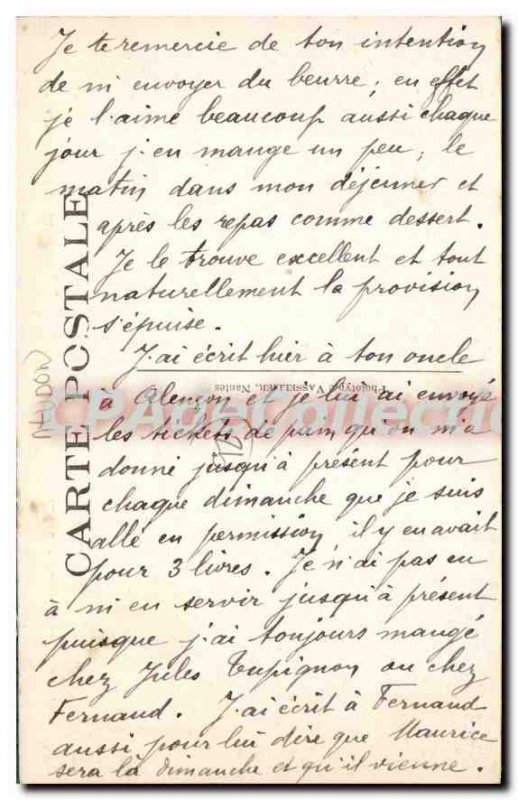 Je te remercie de ton intention
de m'envoyer du beurre; en effet
je l'aime beaucoup aussi chaque
jour j'en mange un peu; le
matin dans mon déjeuner et
après les repas comme dessert.
Je le trouve excellent et tout
naturellement la provision
s'épuise.
J'ai écrit hier à ton oncle
à Alençon et je lui ai envoyé
les tickets de pain qu'on m'a
donné jusqu'à présent pour
chaque dimanche que je suis
allé en permission il y en avait
pour 3 livres. Je n'ai pas eu
à m'en servir jusqu'à présent
puisque j'ai toujours mangé
chez Jules Tupignon ou chez
Fernand. J'ai écrit à Fernand
aussi pour lui dire que Maurice
sera là dimanche et qu'il vienne.
CARTE POSTALE
Phototypie VASSELLIER, Nantes
CPADeCollection